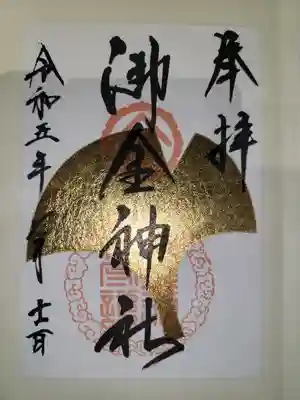 奉拝
御金神社
令和五年 月 十一日